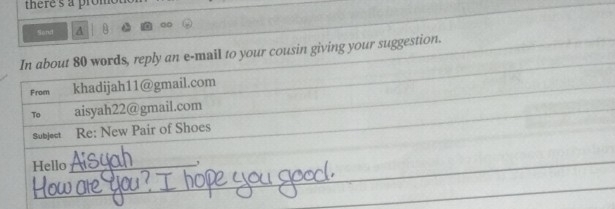 there's a
Send
In about 80 words, reply an e-mail to your cousin giving your suggestion.
From khadijah11@gmail.com
To aisyah22@gmail.com
Subject Re: New Pair of Shoes
Hello Aisyah,
How are you? I hope you good.